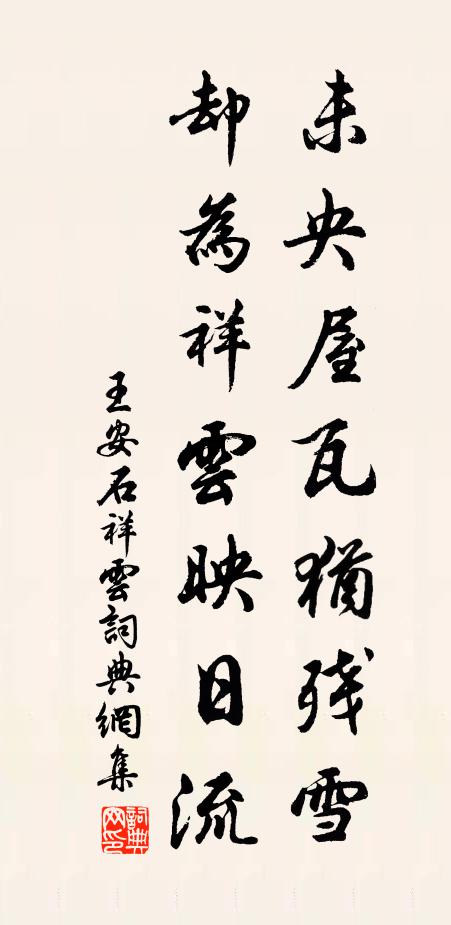 未央屋瓦猶残雪
却為祥雲映日流
王安石祥雲詞典網集
詞典網印